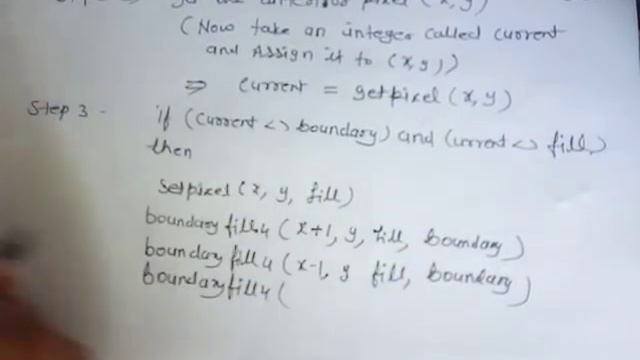 pixel (x, y)
(Now take an integer called current
and Assign it to (x, y))
⇒ current = getpixel (x, y)
Step 3 - if (current <> boundary) and current <> fill)
then
Setpixel (x, y, fill)
boundary fill4 (x+1, y, fill, boundary)
boundary fill4 (x-1, y fill, boundary)
boundaryfill4 (